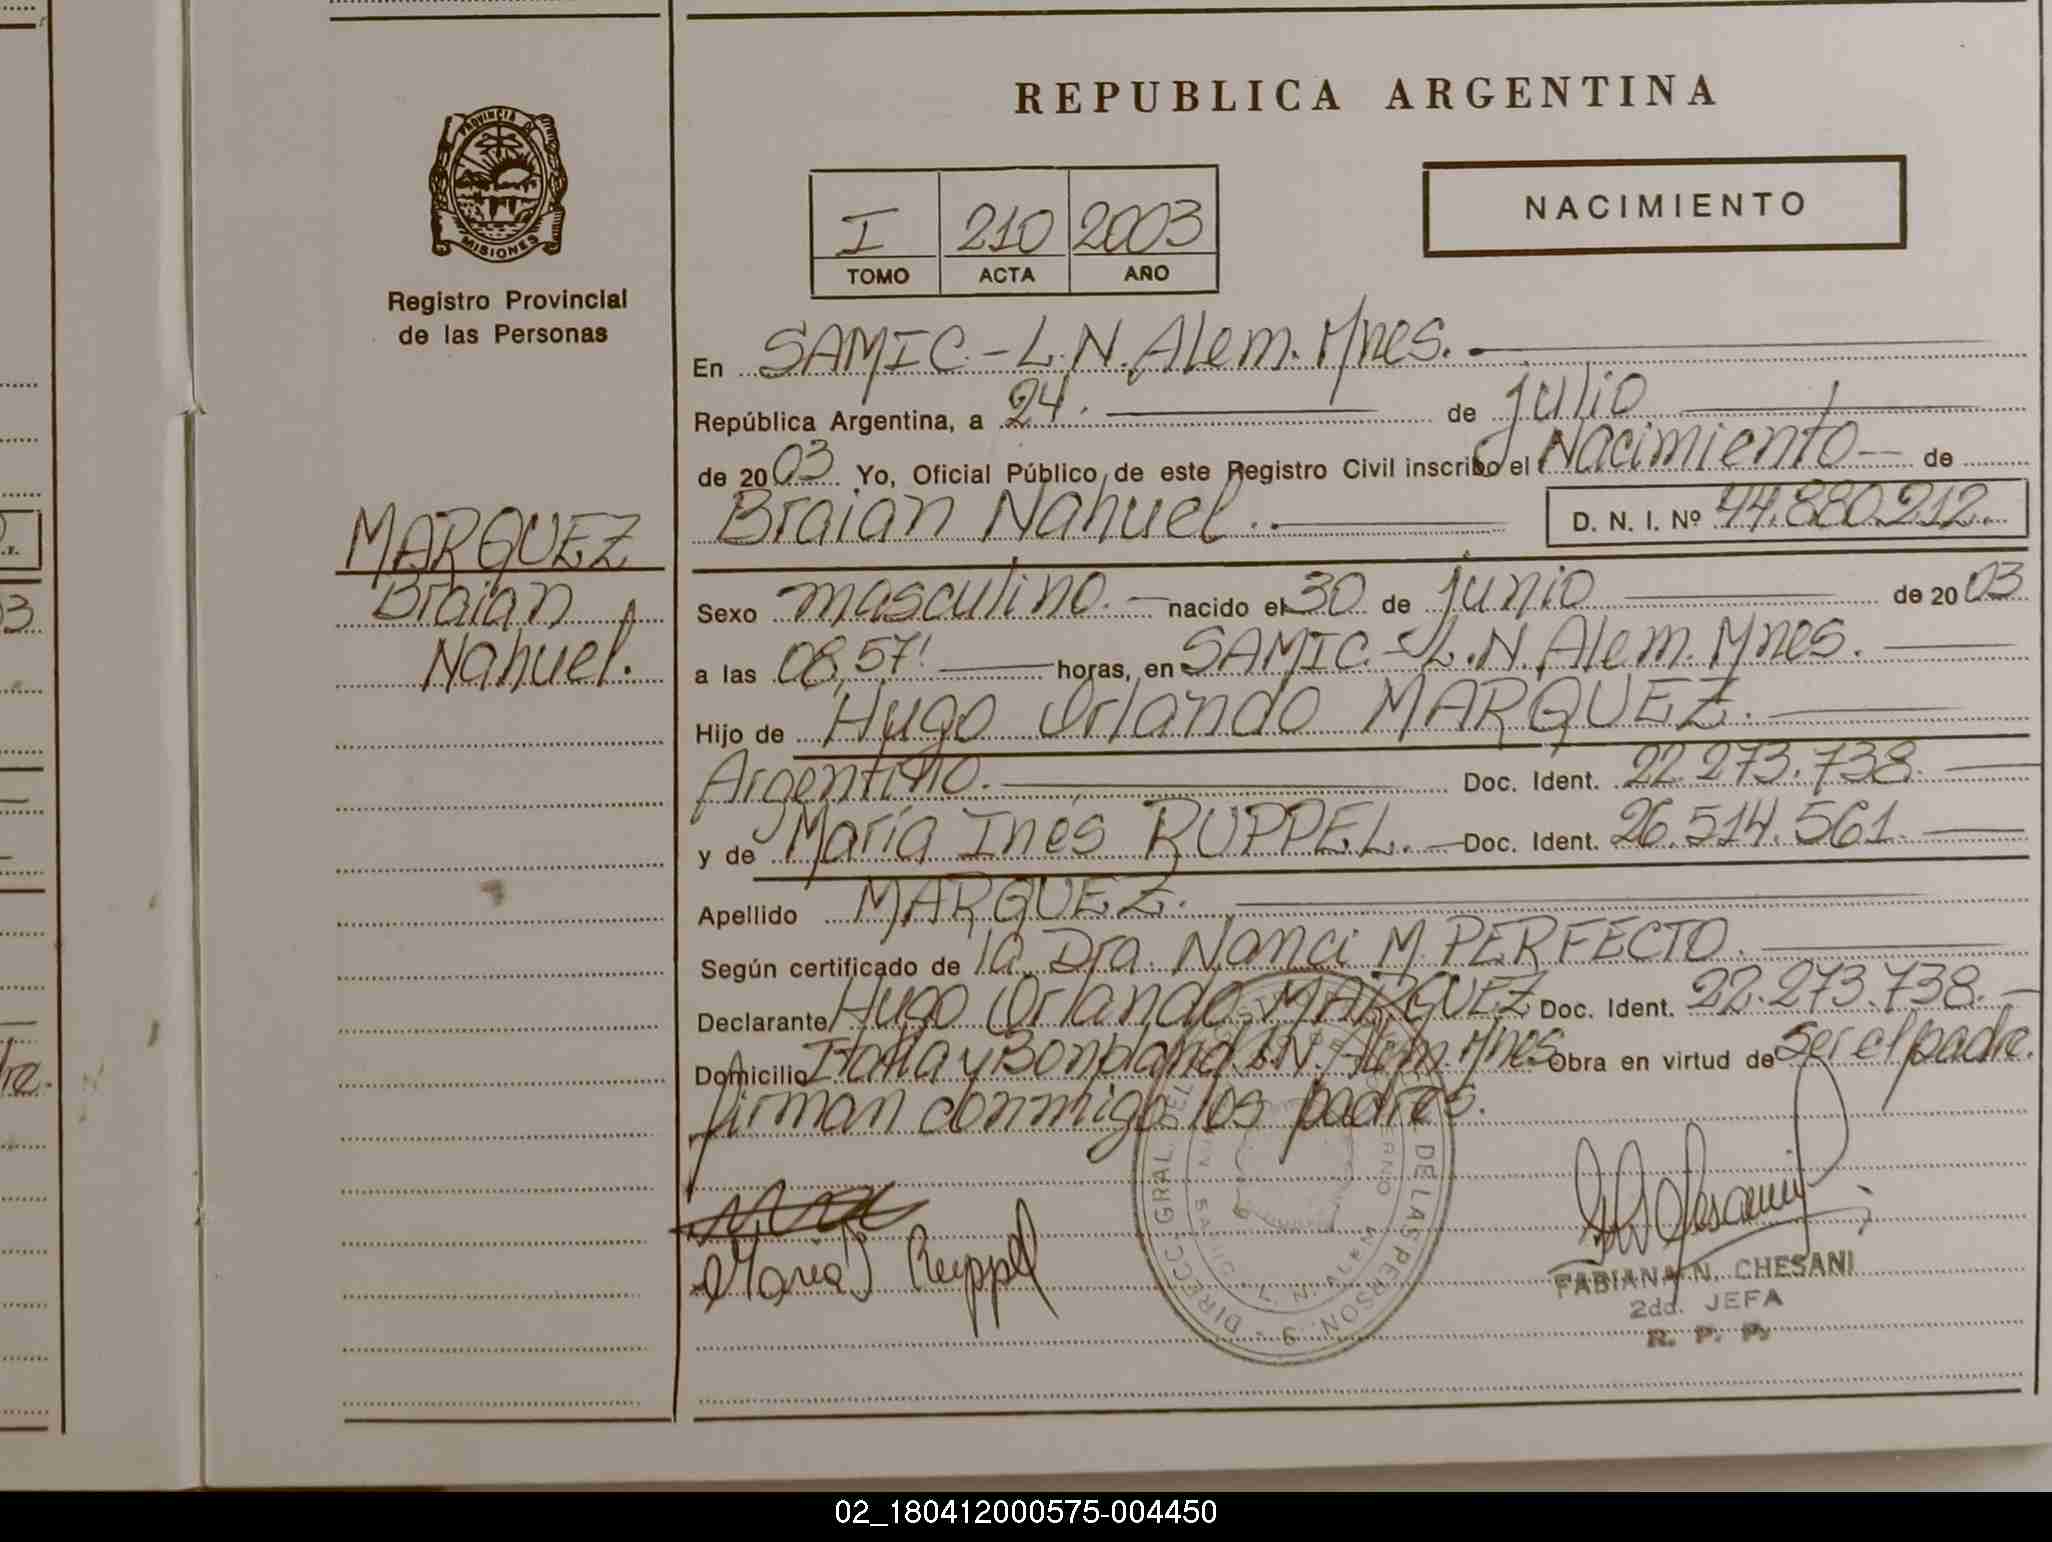 REPUBLICA ARGENTINA
PROVINCIA DE
MISIONES
Registro Provincial
de las Personas
I 210 2003
TOMO ACTA AÑO
NACIMIENTO
MARQUEZ
Braian
Nahuel.
En SAMIC.-L.N.Alem.Mnes.
República Argentina, a 24. de julio
de 2003 Yo, Oficial Público de este Registro Civil inscribo el Nacimiento de
Braian Nahuel. D. N. I. Nº 44.880.212.
Sexo masculino. nacido el 30 de junio de 2003
a las 08,57' horas, en SAMIC.-L.N.Alem.Mnes.
Hijo de Hugo Orlando MARQUEZ.
Argentino. Doc. Ident. 22.273.738.
y de María Inés RUPPEL. Doc. Ident. 26.514.561.
Apellido MARQUEZ.
Según certificado de la Dra. Nanci M. PERFECTO.
Declarante Hugo Orlando MARQUEZ Doc. Ident. 22.273.738.
Domicilio Italia y Bonpland.L.N. Alem.Mnes Obra en virtud de Ser el padre.
firman conmigo los padres.
María I Ruppel
DIRECC. GRAL. DEL DE LAS PERSON.
L. N. ALEM
FABIANA N. CHESANI
2da. JEFA
R. P. P.
03
02_180412000575-004450